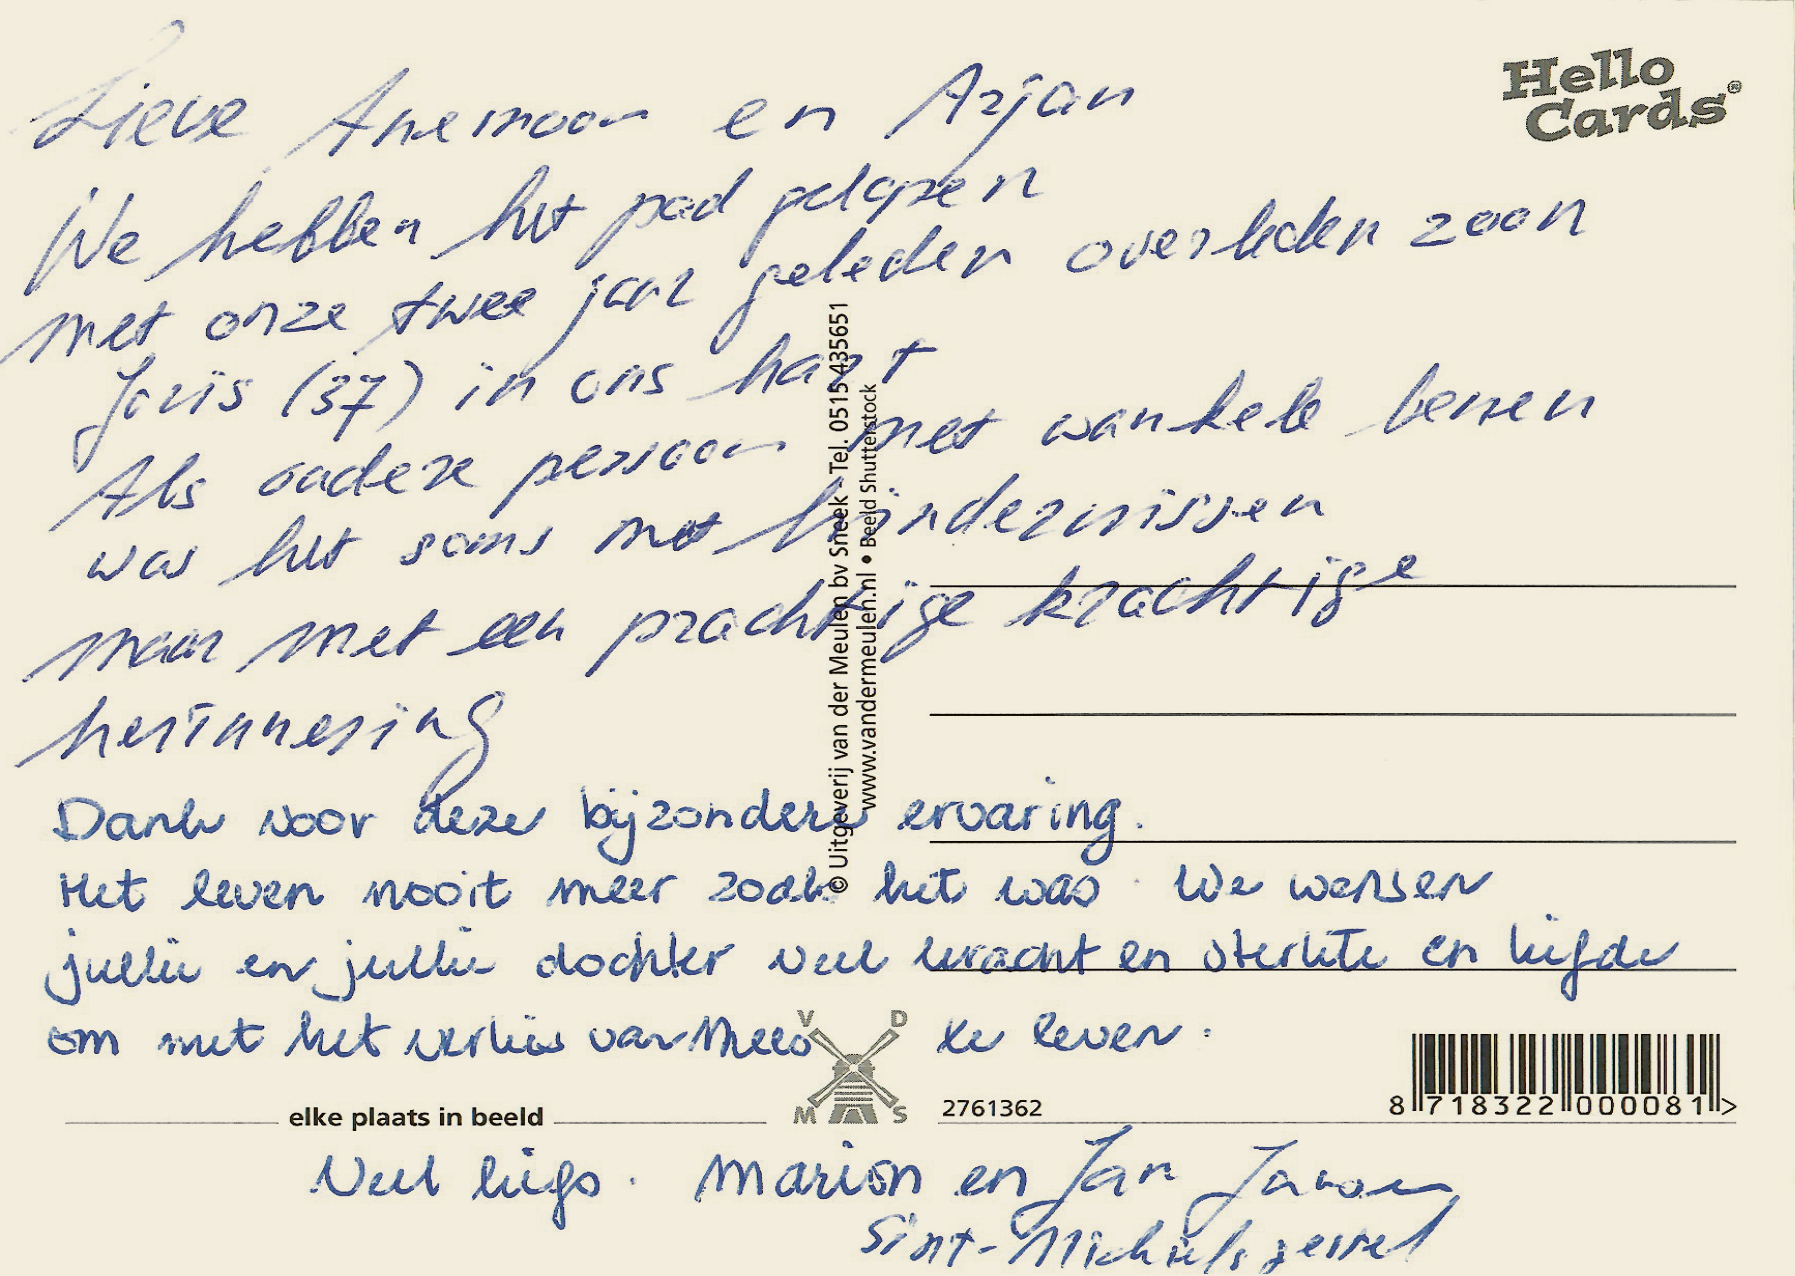 Hello
Cards®
Lieve Anemoon en Arjan
We hebben het pad gelopen
met onze twee jaar geleden overleden zoon
Joris (37) in ons hart
Als oudere persoon met wankele benen
was het soms met hindernissen
maar met een prachtige krachtige
herinnering
Dank voor deze bijzondere ervaring.
Het leven nooit meer zoals het was. We wensen
jullie en jullie dochter veel kracht en sterkte en liefde
om met het verlies van Mees te leven.
© Uitgeverij van der Meulen bv Sneek - Tel. 0515-435651
www.vandermeulen.nl • Beeld Shutterstock
V D
M S
elke plaats in beeld
2761362
8 718322 000081 >
Veel liefs. Marion en Jan Jansen
Sint-Michielsgestel